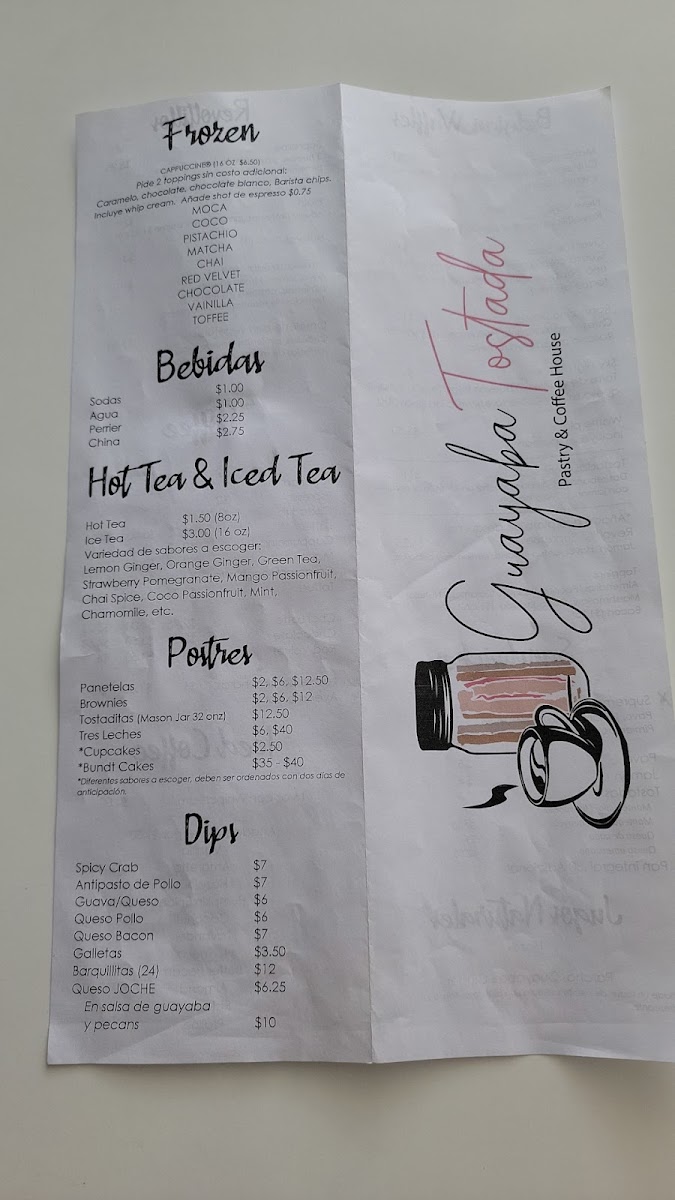 Frozen
CAPPUCCINE® (16 OZ $6.50)
Pide 2 toppings sin costo adicional:
Caramelo, chocolate, chocolate blanco, Barista chips.
Incluye whip cream. Añade shot de espresso $0.75
MOCA
COCO
PISTACHIO
MATCHA
CHAI
RED VELVET
CHOCOLATE
VAINILLA
TOFFEE
Bebidas
Sodas $1.00
Agua $1.00
Perrier $2.25
China $2.75
Hot Tea & Iced Tea
Hot Tea $1.50 (8oz)
Ice Tea $3.00 (16 oz)
Variedad de sabores a escoger:
Lemon Ginger, Orange Ginger, Green Tea,
Strawberry Pomegranate, Mango Passionfruit,
Chai Spice, Coco Passionfruit, Mint,
Chamomile, etc.
Postres
Panetelas $2, $6, $12.50
Brownies $2, $6, $12
Tostaditas (Mason Jar 32 onz) $12.50
Tres Leches $6, $40
*Cupcakes $2.50
*Bundt Cakes $35 - $40
*Diferentes sabores a escoger, deben ser ordenados con dos días de
anticipación.
Dips
Spicy Crab $7
Antipasto de Pollo $7
Guava/Queso $6
Queso Pollo $6
Queso Bacon $7
Galletas $3.50
Barquillitas (24) $12
Queso JOCHE $6.25
En salsa de guayaba
y pecans $10
Guayaba Tostada
Pastry & Coffee House